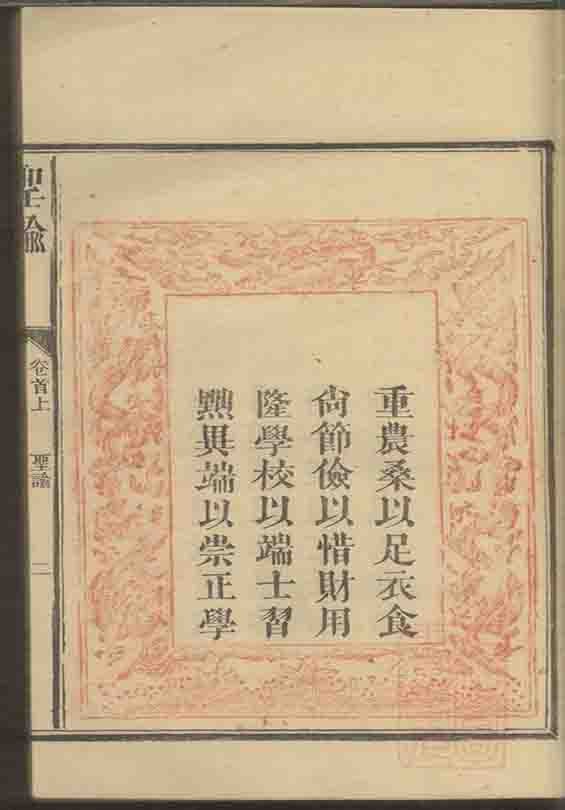 重農桑以足衣食
尚節儉以惜財用
隆學校以端士習
黜異端以崇正學
聖諭
卷首上
聖諭
二